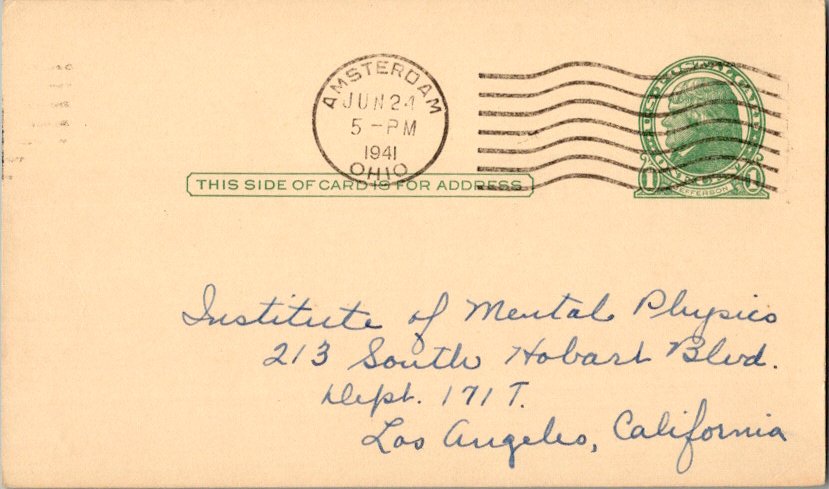 AMSTERDAM
JUN 24
5 - PM
1941
OHIO
THIS SIDE OF CARD IS FOR ADDRESS
1 JEFFERSON 1
Institute of Mental Physics
213 South Hobart Blvd.
Dept. 171 T.
Los Angeles, California